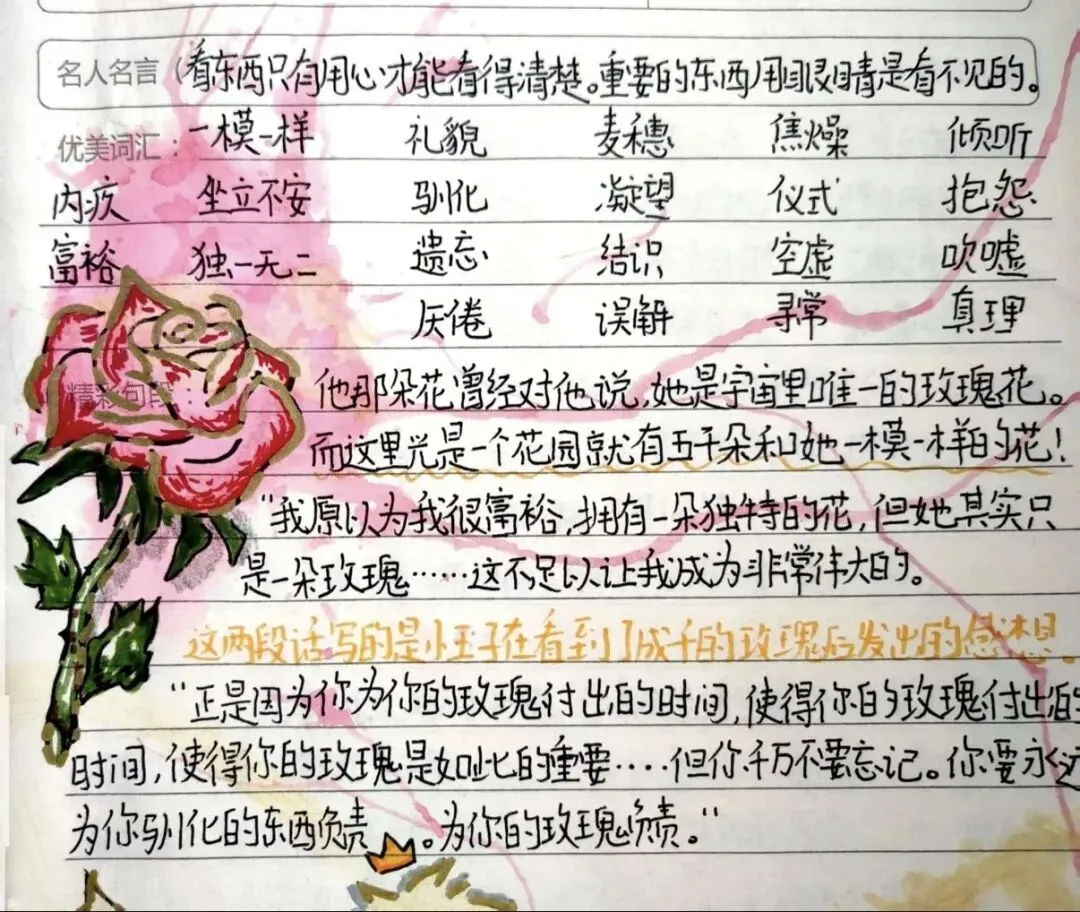 名人名言（看东西只有用心才能看得清楚。重要的东西用眼睛是看不见的。
优美词汇：一模一样 礼貌 麦穗 焦燥 倾听
内疚 坐立不安 驯化 凝望 仪式 抱怨
富裕 独一无二 遗忘 结识 空虚 吹嘘
厌倦 误解 寻常 真理
精彩句段：他那朵花曾经对他说，她是宇宙里唯一的玫瑰花。
而这里光是一个花园就有五千朵和她一模一样的花！
“我原以为我很富裕，拥有一朵独特的花，但她其实只
是一朵玫瑰……这不足以让我成为非常伟大的。
这两段话写的是小王子在看到了成千的玫瑰后发出的感想。
“正是因为你为你的玫瑰付出的时间，使得你的玫瑰付出的
时间，使得你的玫瑰是如此的重要……但你千万不要忘记。你要永远
为你驯化的东西负责。为你的玫瑰负责。“